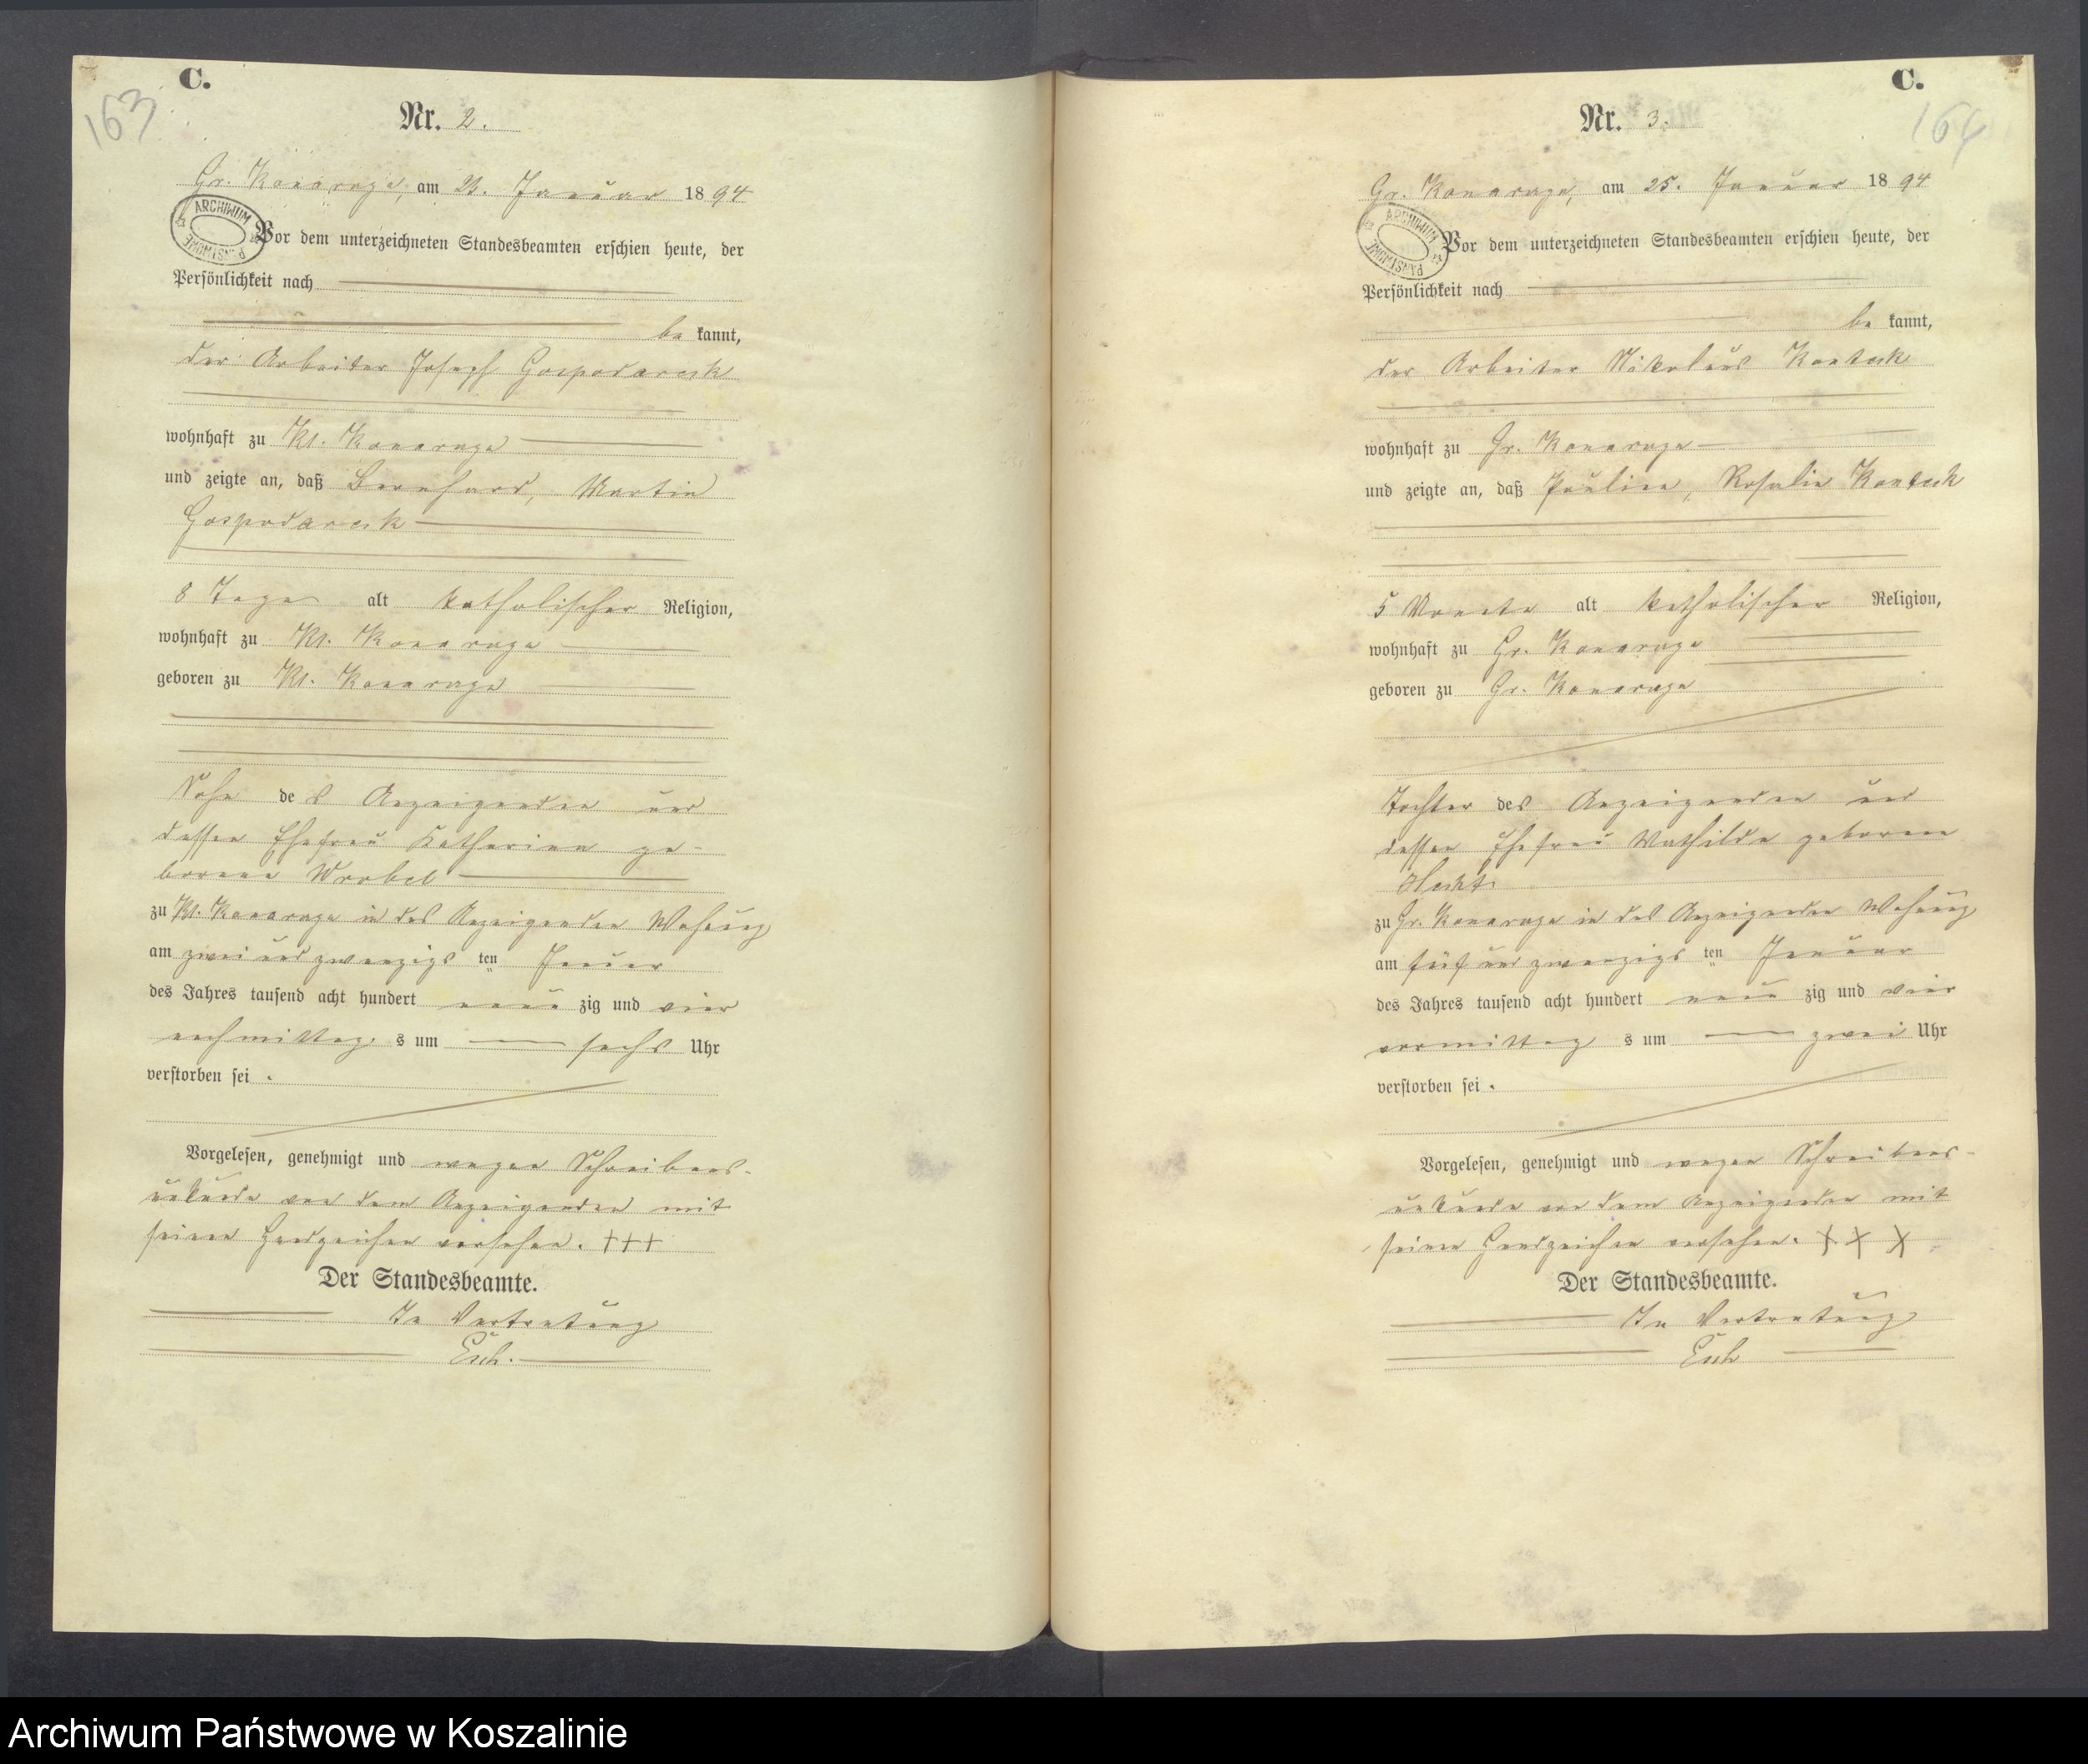 C.
163
Nr. 2.
Gr. Konarzyn, am 23. Januar 1894
ARCHIWUM PAŃSTWOWE
Vor dem unterzeichneten Standesbeamten erschien heute, der
Persönlichkeit nach
be kannt,
der Arbeiter Joseph Gospodareck
wohnhaft zu Kl. Konarzyn
und zeigte an, daß Bernhard, Martin
Gospodareck
8 Tage alt katholischer Religion,
wohnhaft zu Kl. Konarzyn
geboren zu Kl. Konarzyn
Sohn des Anzeigenden und
dessen Ehefrau Katharina ge-
borene Wrobel
zu Kl. Konarzyn in des Anzeigenden Wohnung
am zwei und zwanzigs ten Januar
des Jahres tausend acht hundert neun zig und vier
nachmittag s um sechs Uhr
verstorben sei.
Vorgelesen, genehmigt und wegen Schreibens-
unkunde von dem Anzeigenden mit
seinen Handzeichen versehen. +++
Der Standesbeamte.
In Vertretung
Esch.
C.
164
Nr. 3.
Gr. Konarzyn, am 25. Januar 1894
ARCHIWUM PAŃSTWOWE
Vor dem unterzeichneten Standesbeamten erschien heute, der
Persönlichkeit nach
be kannt,
der Arbeiter Nikolaus Kontek
wohnhaft zu Gr. Konarzyn
und zeigte an, daß Pauline, Rosalie Kontek
5 Monate alt katholischer Religion,
wohnhaft zu Gr. Konarzyn
geboren zu Gr. Konarzyn
Tochter des Anzeigenden und
dessen Ehefrau Mathilde geborene
Hecht.
zu Gr. Konarzyn in des Anzeigenden Wohnung
am fünf und zwanzigs ten Januar
des Jahres tausend acht hundert neun zig und vier
vormittag s um zwei Uhr
verstorben sei.
Vorgelesen, genehmigt und wegen Schreibens-
unkunde von dem Anzeigenden mit
seinen Handzeichen versehen. X X X
Der Standesbeamte.
In Vertretung
Esch
Archiwum Państwowe w Koszalinie